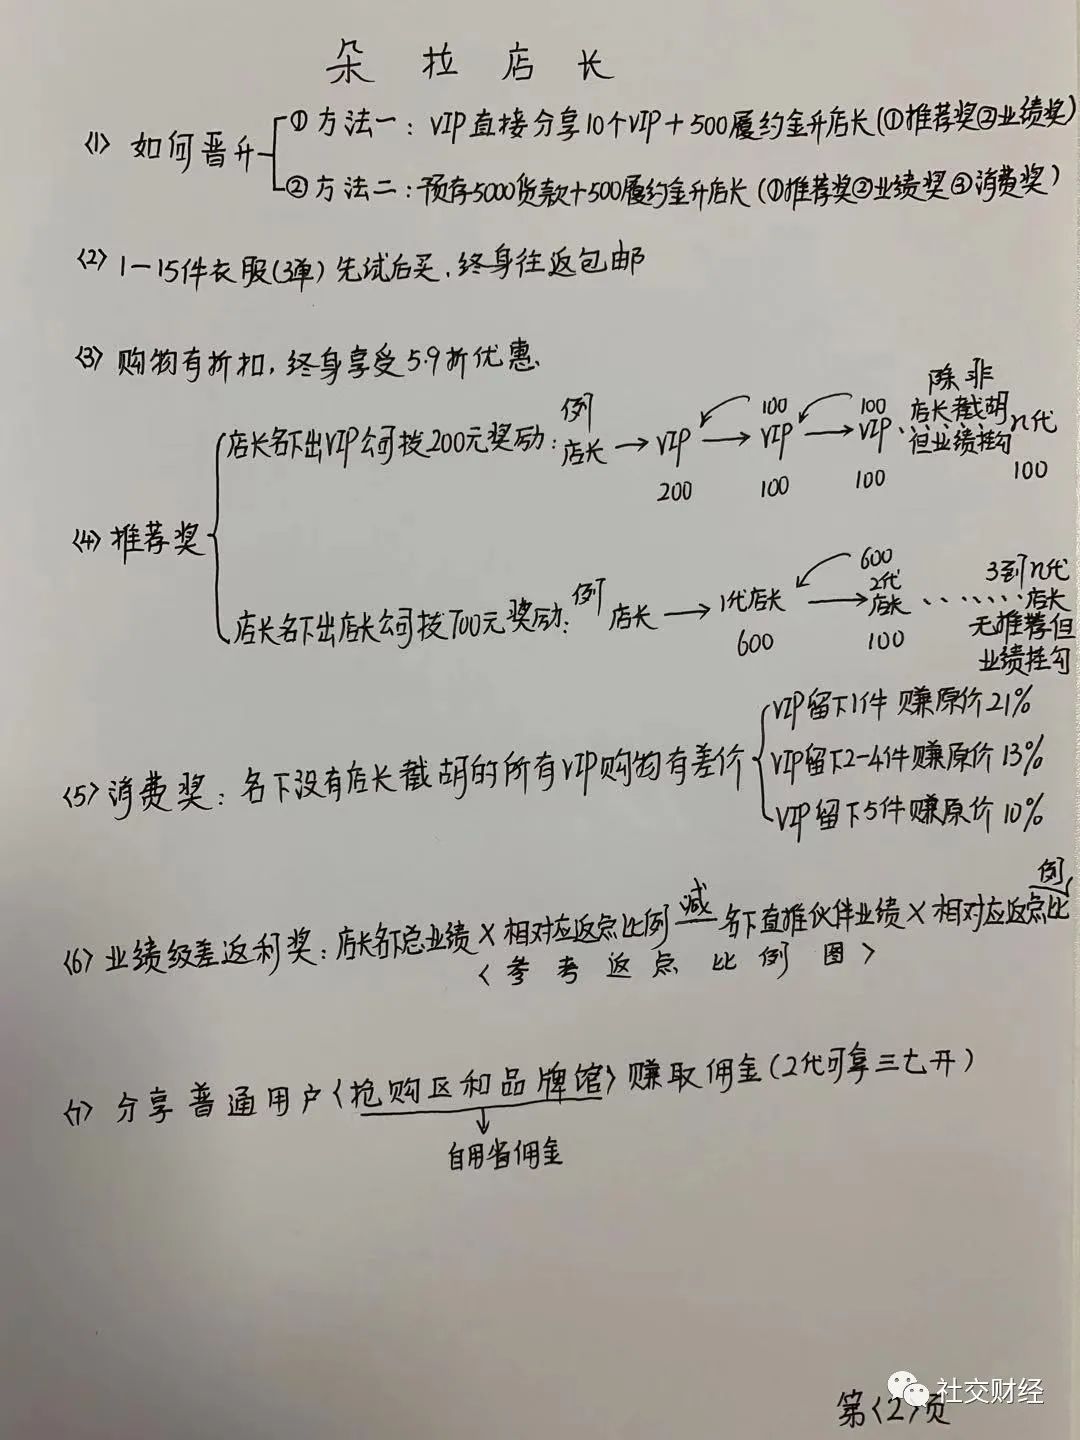 朵拉店长
<1> 如何晋升
①方法一：VIP直接分享10个VIP+500履约金升店长(①推荐奖②业绩奖)
②方法二：预存5000货款+500履约金升店长(①推荐奖②业绩奖③消费奖)
<2> 1-15件衣服(3单)先试后买，终身往返包邮
<3> 购物有折扣，终身享受5.9折优惠.
<4> 推荐奖
店长名下出VIP公司拨200元奖励：例 店长→VIP→VIP→VIP......n代
100 100
200 100 100 100
除非
店长截胡
但业绩挂勾
店长名下出店长公司拨700元奖励：例 店长→1代店长→2代店长......3到n代店长
600
600 100
无推荐但
业绩挂勾
<5> 消费奖：名下没有店长截胡的所有VIP购物有差价
VIP留下1件 赚原价21%
VIP留下2-4件赚原价13%
VIP留下5件赚原价10%
<6> 业绩级差返利奖：店长名下总业绩×相对应返点比例减名下直推伙伴业绩×相对应返点比例
<参考返点比例图>
<7> 分享普通用户<抢购区和品牌馆>赚取佣金(2代可拿三七开)
↓
自用省佣金
第<2>页
社交财经